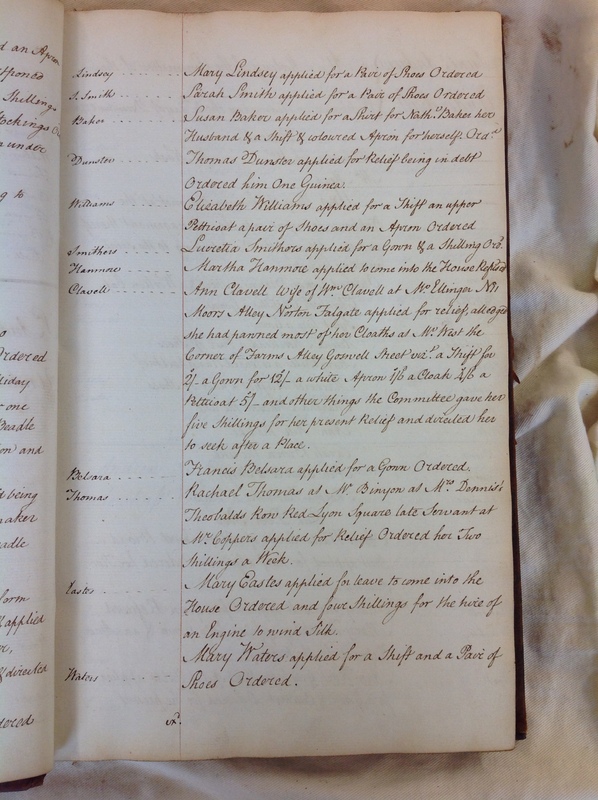 d an Apron
stponed
Shillings
tockings Or
under
ng to
o
Ordered
liday
r one
Beadle
on and
d being
maker
adle
form
applied
er,
directed
dered
Lindsey . . . . . . Mary Lindsey applied for a Pair of Shoes Ordered
S. Smith . . . . . Sarah Smith applied for a Pair of Shoes Ordered
Baker . . . . . . Susan Baker applied for a Shirt for Nath.l Baker her
Husband & a Shift & coloured Apron for herself. Ord.d
Dunster . . . . . Thomas Dunster applied for Relief being in debt
Ordered him One Guinea.
Williams . . . . . Elizabeth Williams applied for a Shift an upper
Petticoat a pair of Shoes and an Apron Ordered
Smithers . . . . . Lucretia Smithers applied for a Gown & a Shilling Ord.
Hanmore . . . . . Martha Hanmore applied to come into the House Refused
Clavell . . . . . . Ann Clavell Wife of Wm Clavell at Mr Ellinger No 1
Moors Alley Norton Falgate applied for relief, alledged
she had pawned most of her Cloaths at Mr West the
Corner of Farms Alley Goswell Street viz.t a Shift for
2/- a Gown for 12/- a white Apron 1/6 a Cloak 4/6 a
Petticoat 5/- and other things the Committee gave her
five Shillings for her present Relief and directed her
to seek after a Place.
Belsara . . . . . . Francis Belsara applied for a Gown Ordered.
Thomas . . . . . . Rachael Thomas at Mr Binyon at Mrs Dennis's
Theobalds Row Red Lyon Square late Servant at
Mr Coppers applied for Relief Ordered her Two
Shillings a Week.
Eastes . . . . . . Mary Eastes applied for leave to come into the
House Ordered and four Shillings for the hire of
an Engine to wind Silk.
Waters . . . . . . Mary Waters applied for a Shift and a Pair of
Shoes Ordered.
ex.d